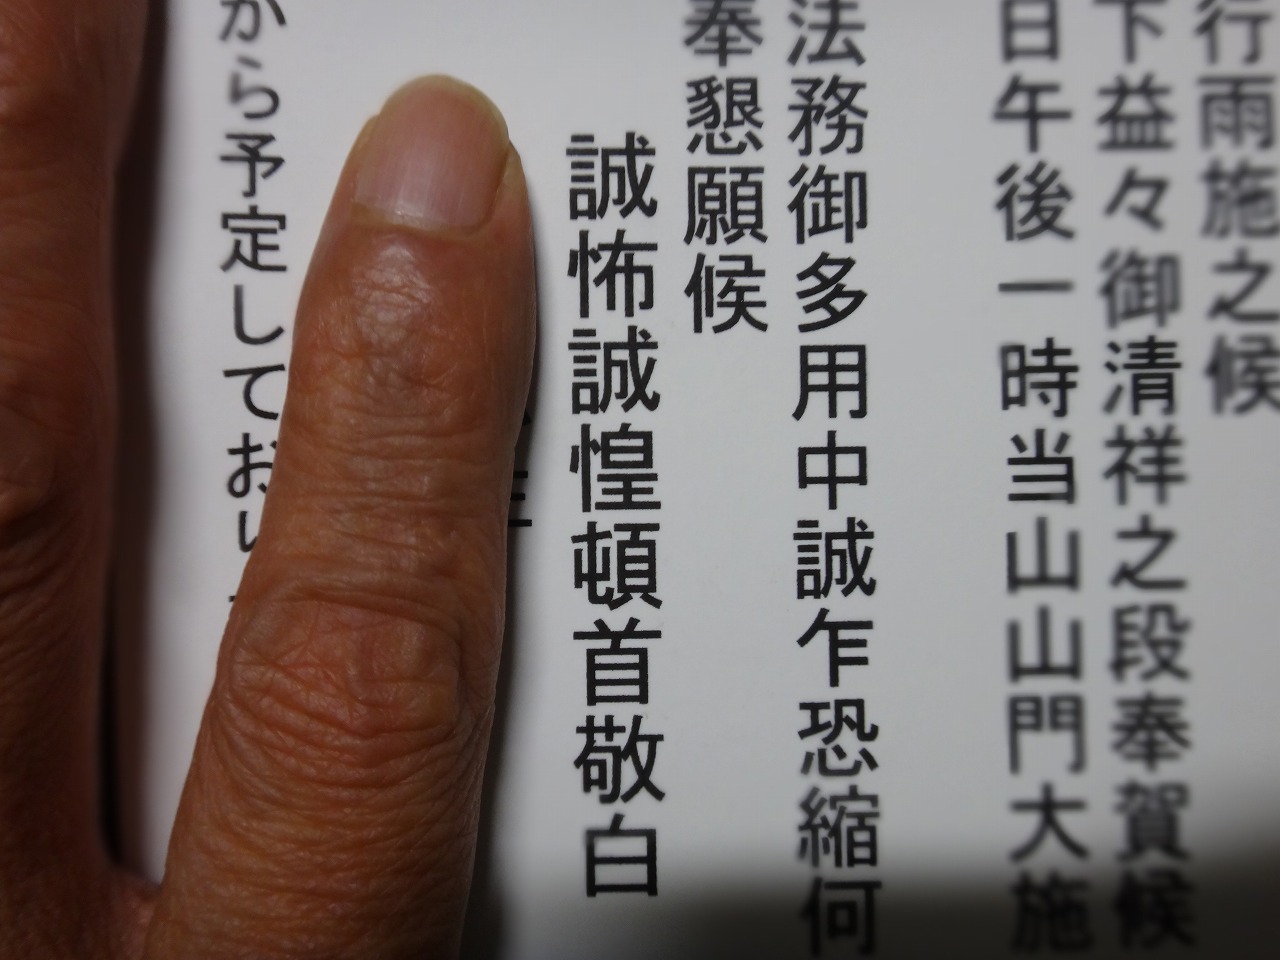 行雨施之候
下益々御清祥之段奉賀候
日午後一時当山山門大施
法務御多用中誠乍恐縮何
奉懇願候
誠怖誠惶頓首敬白
から予定してお